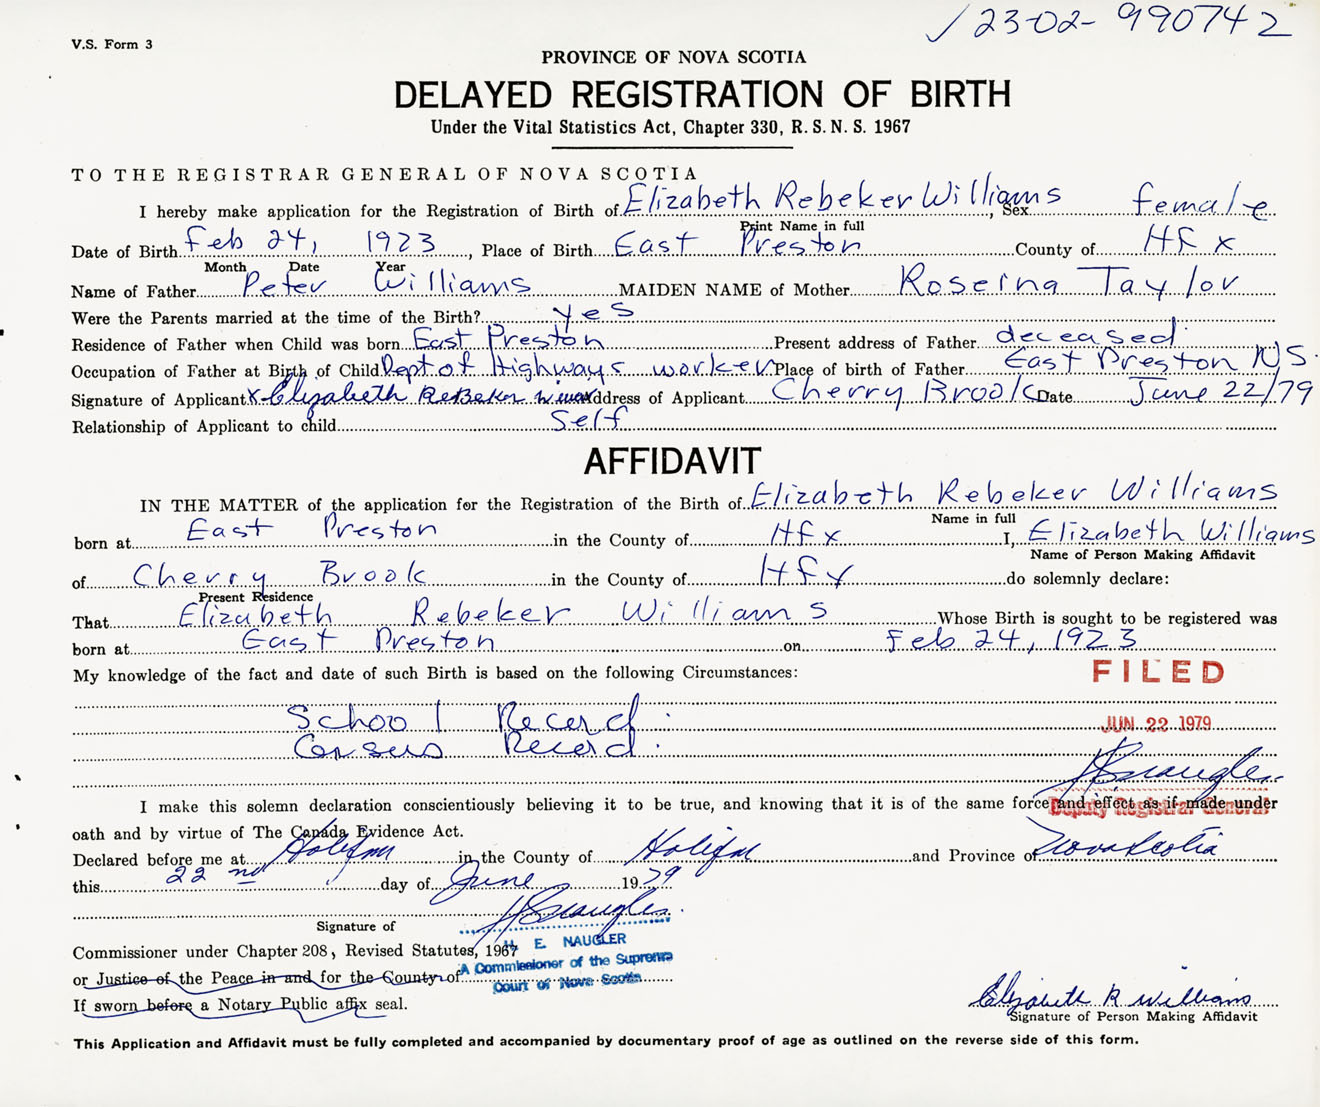 ✓ 23-02-990742
V.S. Form 3
PROVINCE OF NOVA SCOTIA
DELAYED REGISTRATION OF BIRTH
Under the Vital Statistics Act, Chapter 330, R. S. N. S. 1967
TO THE REGISTRAR GENERAL OF NOVA SCOTIA
I hereby make application for the Registration of Birth of Elizabeth Rebeker Williams, Sex female
Print Name in full
Date of Birth Feb 24, 1923, Place of Birth East Preston County of Hfx
Month Date Year
Name of Father Peter Williams MAIDEN NAME of Mother Roseina Taylor
Were the Parents married at the time of the Birth? yes
Residence of Father when Child was born East Preston Present address of Father deceased
Occupation of Father at Birth of Child Dept of Highways worker Place of birth of Father East Preston NS.
Signature of Applicant x Elizabeth ReBeker Address of Applicant Cherry Brook Date June 22/79
Relationship of Applicant to child Self
AFFIDAVIT
IN THE MATTER of the application for the Registration of the Birth of Elizabeth Rebeker Williams
Name in full
born at East Preston in the County of Hfx I, Elizabeth Williams
Name of Person Making Affidavit
of Cherry Brook in the County of Hfx do solemnly declare:
Present Residence
That Elizabeth Rebeker Williams Whose Birth is sought to be registered was
born at East Preston on Feb 24, 1923
My knowledge of the fact and date of such Birth is based on the following Circumstances:
FILED
School Record.
JUN 22 1979
Census Record.
HE Naugler
I make this solemn declaration conscientiously believing it to be true, and knowing that it is of the same force and effect as if made under
Deputy Registrar General
oath and by virtue of The Canada Evidence Act.
Declared before me at Halifax in the County of Halifax and Province of Nova Scotia
this 22nd day of June 1979
HE Naugler
Signature of
Commissioner under Chapter 208, Revised Statutes, 1967
H. E. NAUGLER
A Commissioner of the Supreme
Court of Nova Scotia
or Justice of the Peace in and for the County of
If sworn before a Notary Public affix seal.
Elizabeth R Williams
Signature of Person Making Affidavit
This Application and Affidavit must be fully completed and accompanied by documentary proof of age as outlined on the reverse side of this form.